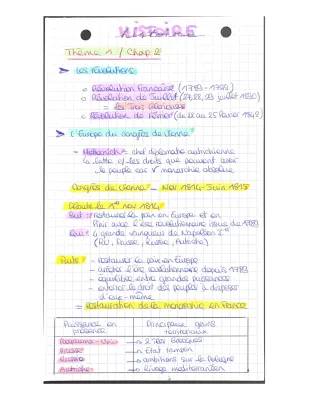 HISTOIRE
Thème 1 / Chap 2
➤ Les révolutions
o Révolution française (1789 - 1799)
o Révolution de Juillet (27, 28, 29 juillet 1830)
= Les Trois Glorieuses
o Révolution de Février (du 22 au 25 Février 1848)
➤ L'Europe du congrès de Vienne
- Metternich : chef diplomate autrichienne
& lutte c/ les droits que peuvent avoir
le peuple car monarchie absolue
Congrès de Vienne - Nov 1814 - Juin 1815
Débute le 1er nov 1814
But : restaurer la paix en Europe et en
finir avec l'ère révolutionnaire issue de 1789
Qui : 4 grands vainqueurs de Napoléon 1er
(RU, Prusse, Russie, Autriche)
Buts : - restaurer la paix en Europe
- arrêter l'ère révolutionnaire depuis 1789
- équilibre entre grandes puissances
- enterrer le droit des peuples à disposer
d'eux-même
= Restauration de la monarchie en France
Puissances en présence
Principaux gains territoriaux
Royaume-Uni → îles
Prusse → Etat tampon
Russie → ambitions sur la Pologne
Autriche → rivage méditerranéen